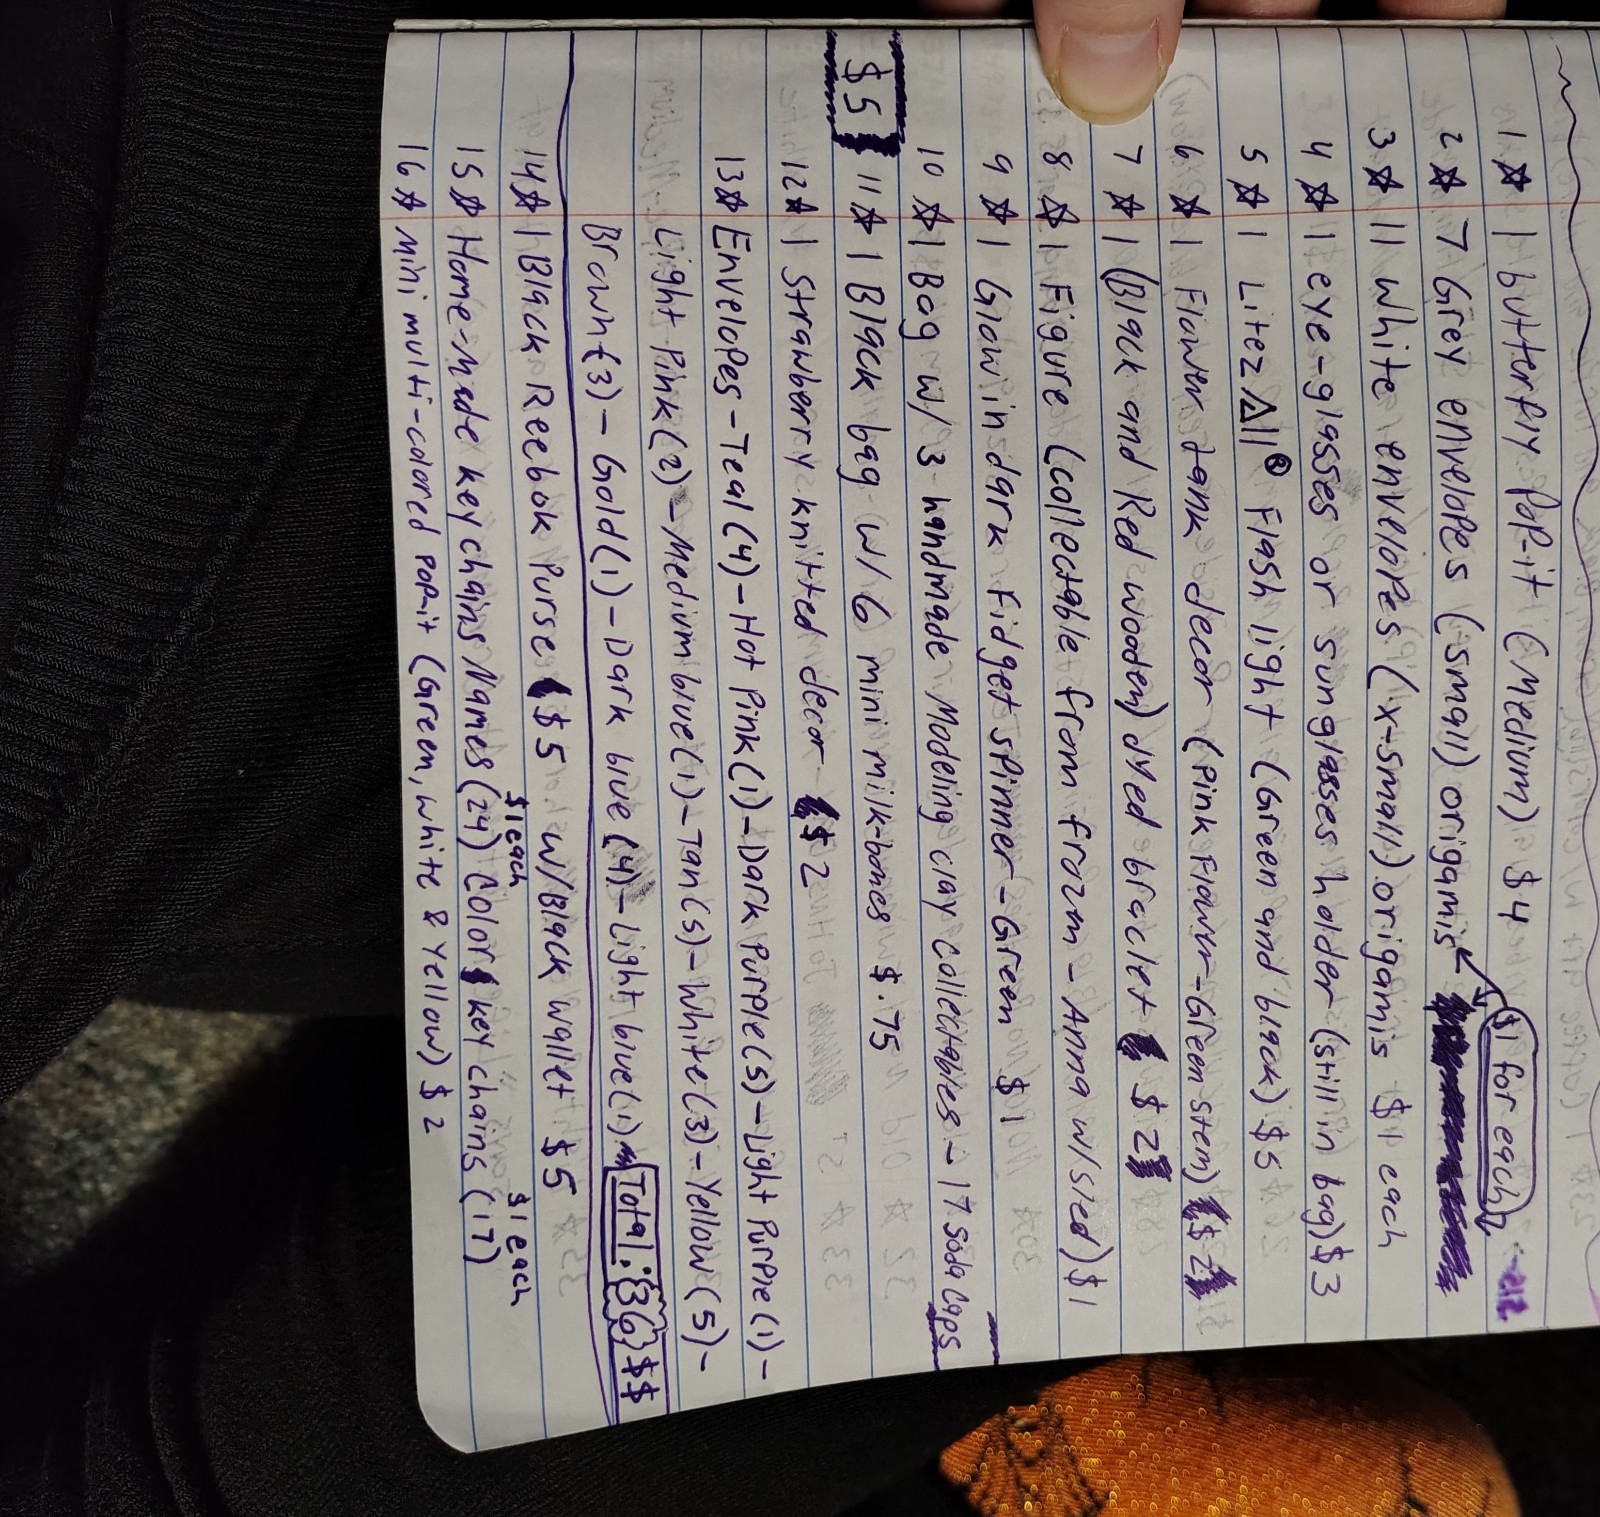 1☆ 1 butterfly Pop-it (Medium) $4
$1 for each
2☆ 7 Grey envelopes (small) origamis
3☆ 11 White envelopes (x-small) origamis $1 each
4☆ 1 eye-glasses or sunglasses holder (still in bag) $3
5☆ 1 LitezAll® Flash light (Green and black) $5
6☆ 1 Flower tank decor (Pink Flower-Green stem) $2
7☆ 1 (Black and Red wooden) dyed braclet $2
8☆ 1 Figure (collectable from Frozm - Anna w/sled) $1
9☆ 1 Glow in dark Fidget spinner - Green $1
10☆ 1 Bag w/3 handmade Modeling clay collectables - 17 Soda Caps
$5
11☆ 1 Black bag w/6 mini milk-bones $.75
12☆ 1 Strawberry knitted decor $2
13☆ Envelopes-Teal(4)-Hot Pink(1)-Dark Purple(5)-Light Purple(1)-
Light Pink(2)-Medium blue(1)-Tan(5)-White(3)-Yellow(5)-
Brown(3)-Gold(1)-Dark blue(4)-Light blue(1) Total:{36}$$
14☆ 1 Black Reebok Purse $5 w/Black wallet $5
$1 each $1 each
15☆ Home-made key chains Names(24) Color key chains (17)
16☆ mini multi-colored Pop-it (Green, white & yellow) $2